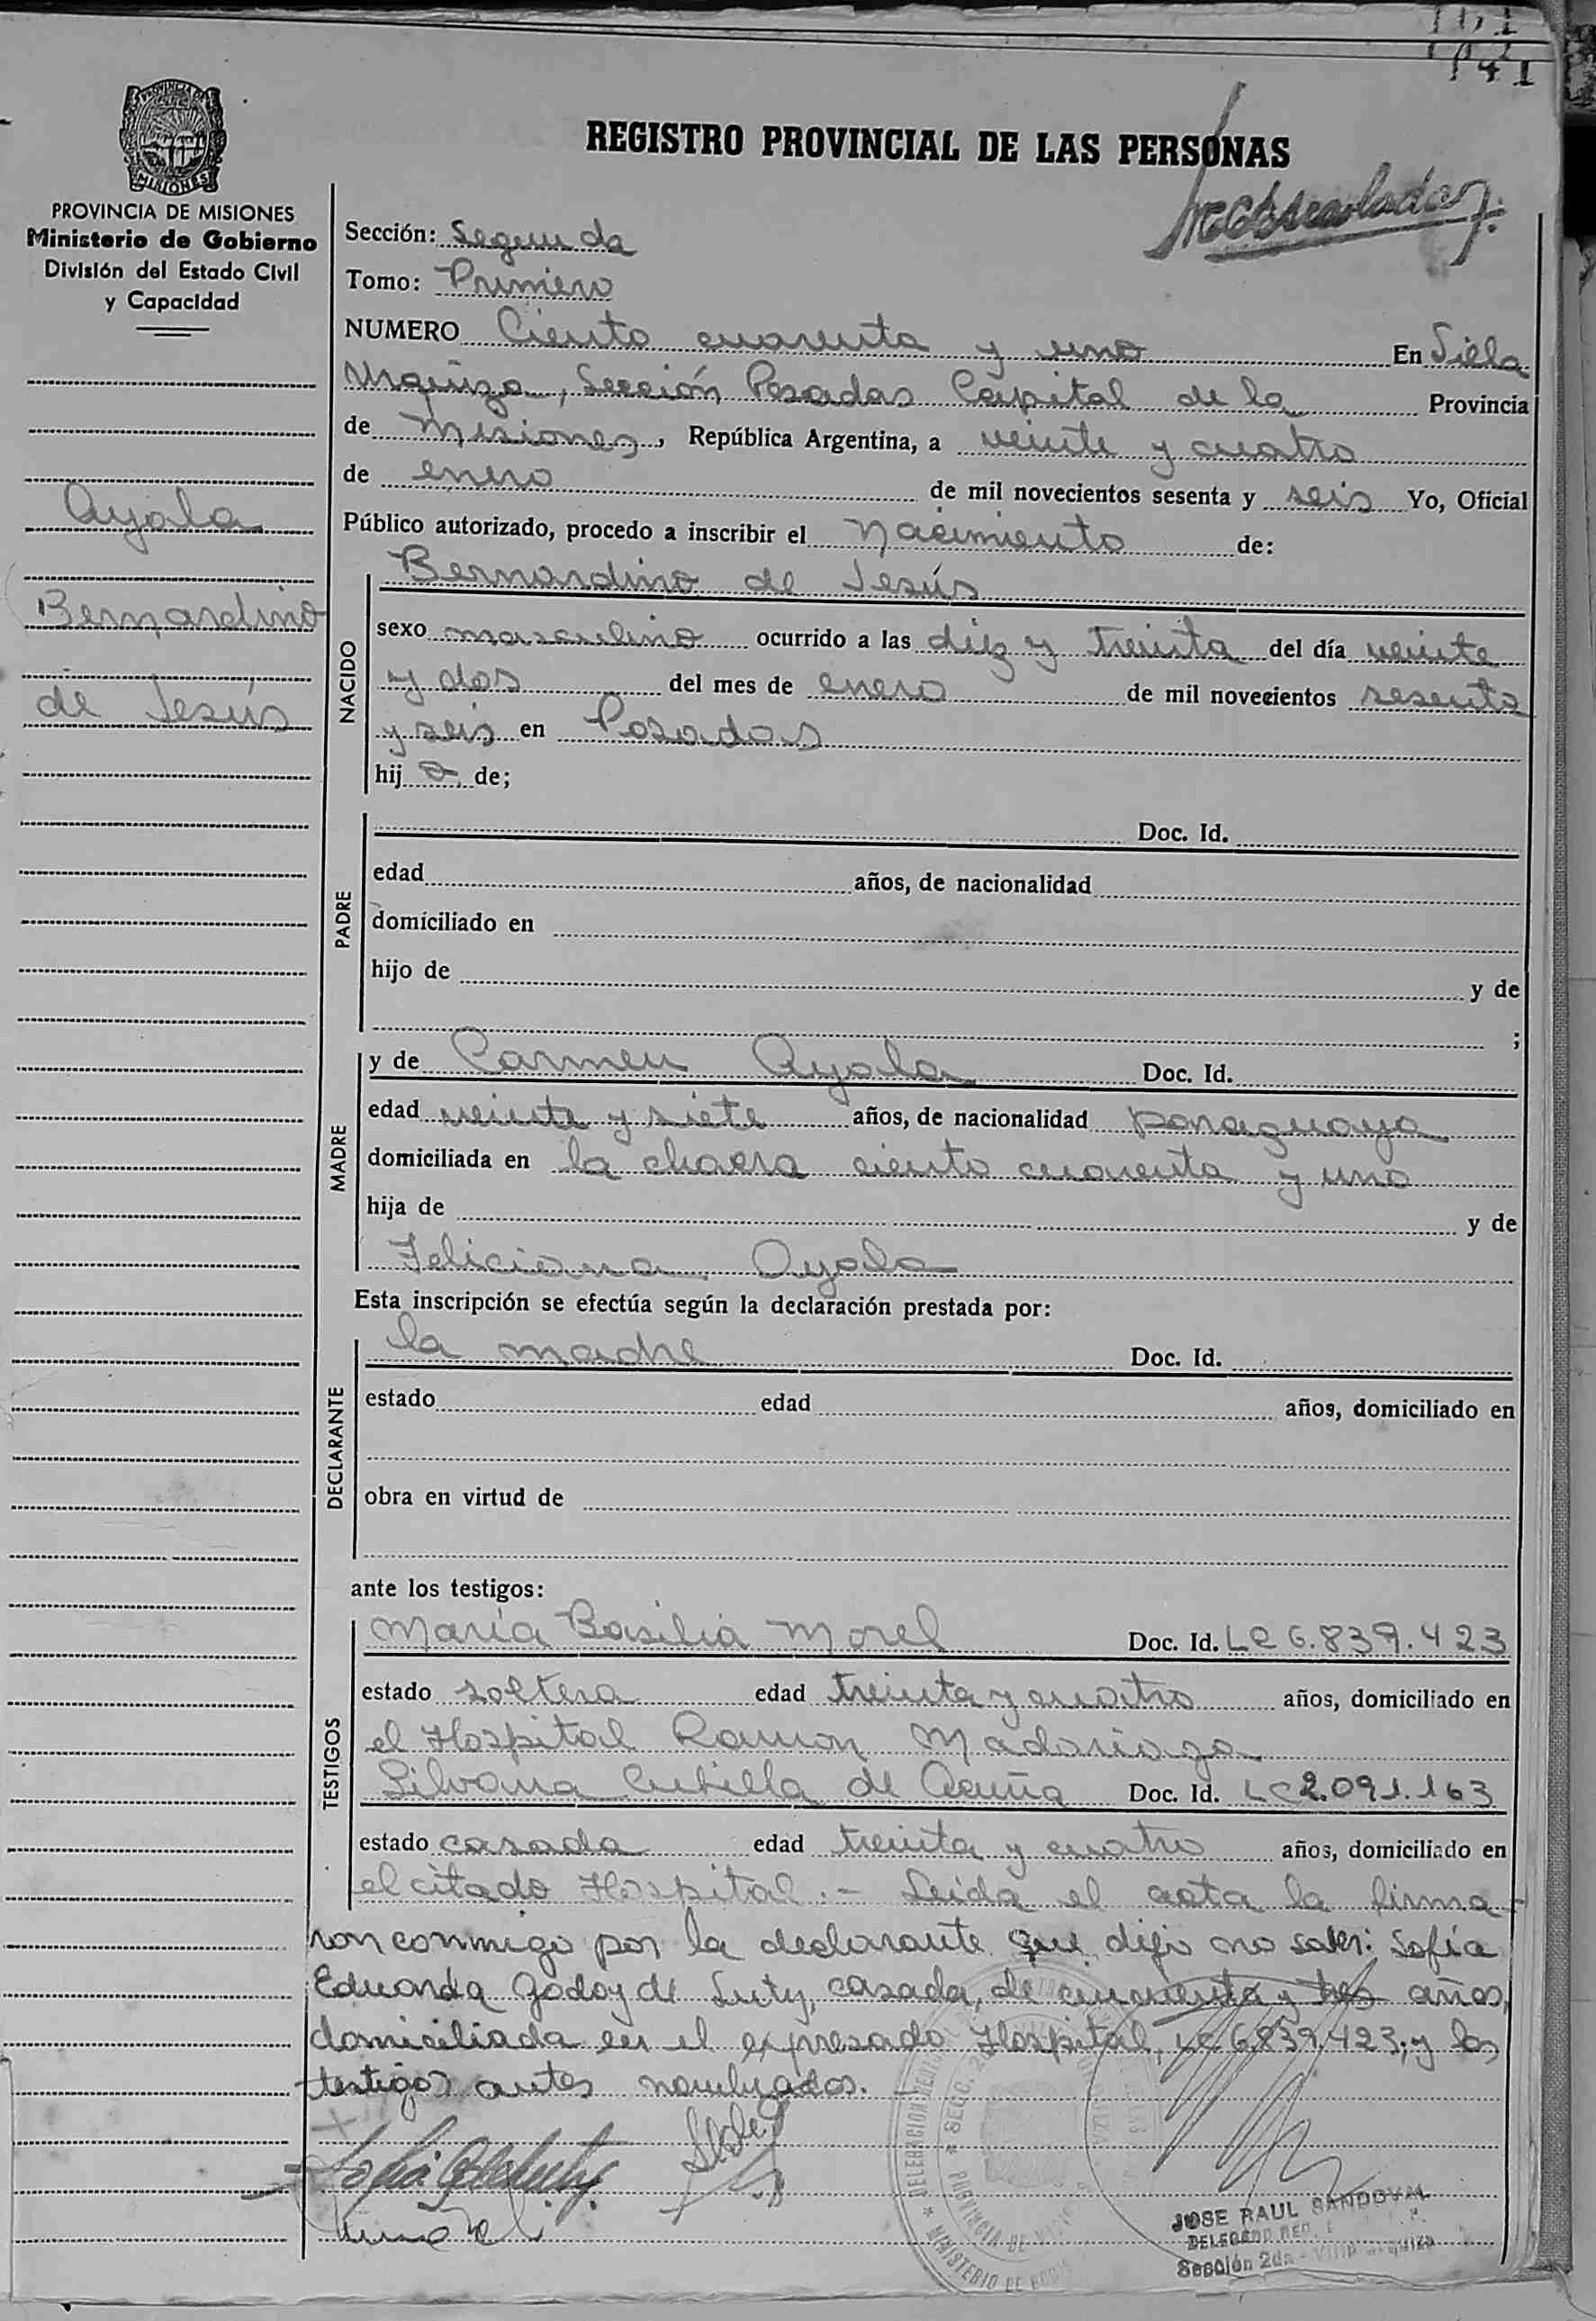 141
REGISTRO PROVINCIAL DE LAS PERSONAS
PROVINCIA DE MISIONES
Ministerio de Gobierno
División del Estado Civil
y Capacidad
Ayala
Bernardino
de Jesús
Sección: Segunda
Tomo: Primero
NUMERO Ciento cuarenta y uno En Villa
Urquiza, Sección Posadas Capital de la Provincia
de Misiones, República Argentina, a veinte y cuatro
de enero de mil novecientos sesenta y seis Yo, Oficial
Público autorizado, procedo a inscribir el Nacimiento de:
NACIDO
Bernardino de Jesús
sexo masculino ocurrido a las diez y treinta del día veinte
y dos del mes de enero de mil novecientos sesenta
y seis en Posadas
hijo de;
PADRE
Doc. Id.
edad años, de nacionalidad
domiciliado en
hijo de y de
;
MADRE
y de Carmen Ayala Doc. Id.
edad veinte y siete años, de nacionalidad paraguaya
domiciliada en la chacra ciento cuarenta y uno
hija de y de
Feliciana Ayala
Esta inscripción se efectúa según la declaración prestada por:
DECLARANTE
la madre Doc. Id.
estado edad años, domiciliado en
obra en virtud de
ante los testigos:
TESTIGOS
María Basilia Morel Doc. Id. LC 6.839.423
estado soltera edad treinta y cuatro años, domiciliado en
el Hospital Ramon Madariaga
Silvana Cubilla de Acuña Doc. Id. LC 2.091.163
estado casada edad treinta y cuatro años, domiciliado en
el citado Hospital.- Leida el acta la firma-
ron conmigo por la declarante que dijo no saber: Sofía
Eduarda Godoy de Luty, casada, de cincuenta y tres años,
domiciliada en el expresado Hospital, LC 6.839.423; y los
testigos antes nombrados.-
JOSE RAUL SANDOVAL
DELEGADO REG.
Sección 2da - Villa Urquiza